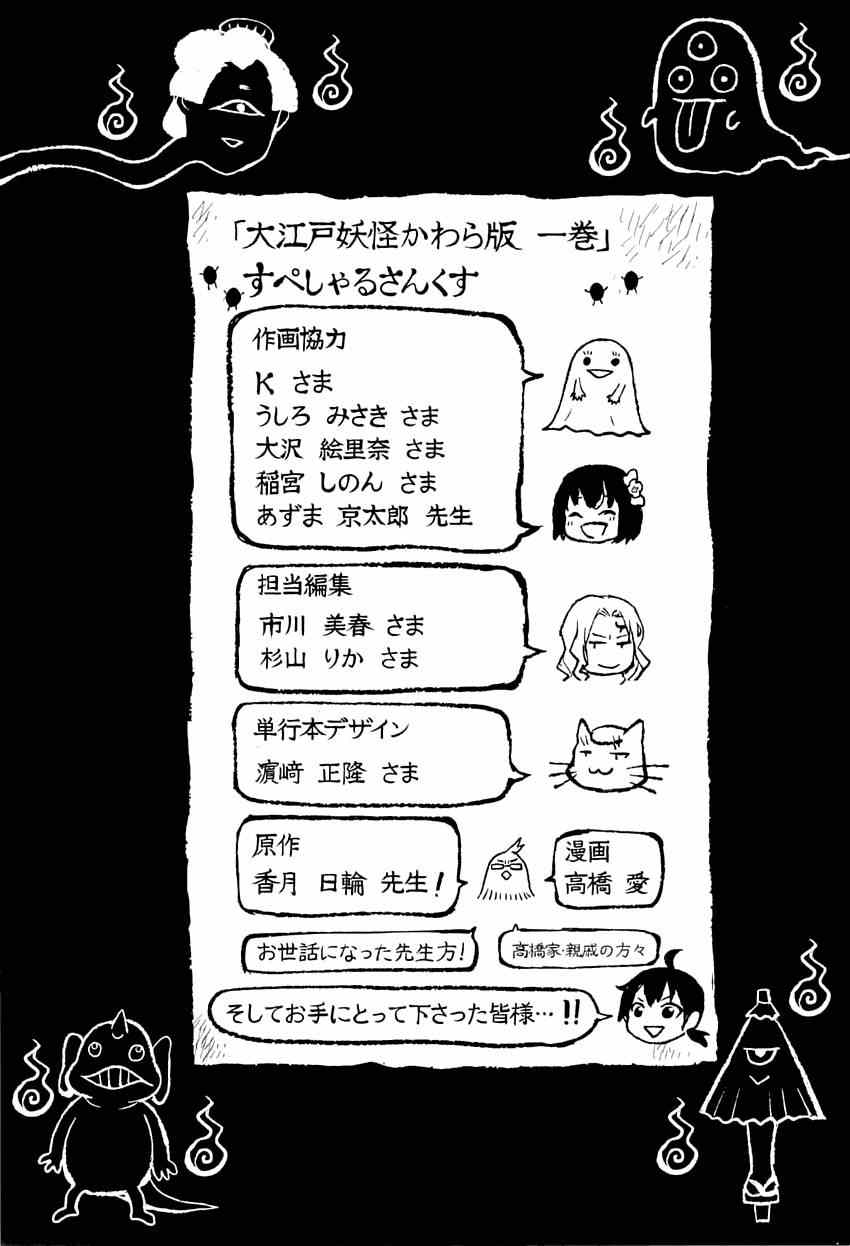 「大江戸妖怪かわら版 一巻」
すぺしゃるさんくす
作画協力
K さま
うしろ みさき さま
大沢 絵里奈 さま
稲宮 しのん さま
あずま 京太郎 先生
担当編集
市川 美春 さま
杉山 りか さま
単行本デザイン
濵﨑 正隆 さま
原作
香月 日輪 先生!
漫画
高橋 愛
お世話になった先生方!
高橋家・親戚の方々
そしてお手にとって下さった皆様…!!